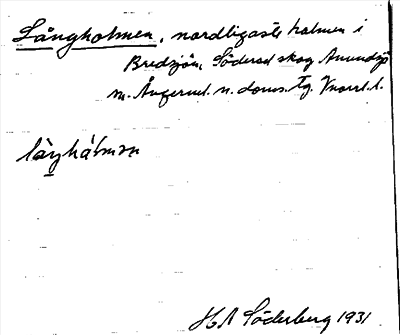 Långholmen, nordligaste holmen i
Bredsjön, Söderad skog Amundsjö
m. Ångerml. n. doms. Tg. Vnorrl. l.
låŋhålmən
H A Söderberg 1931